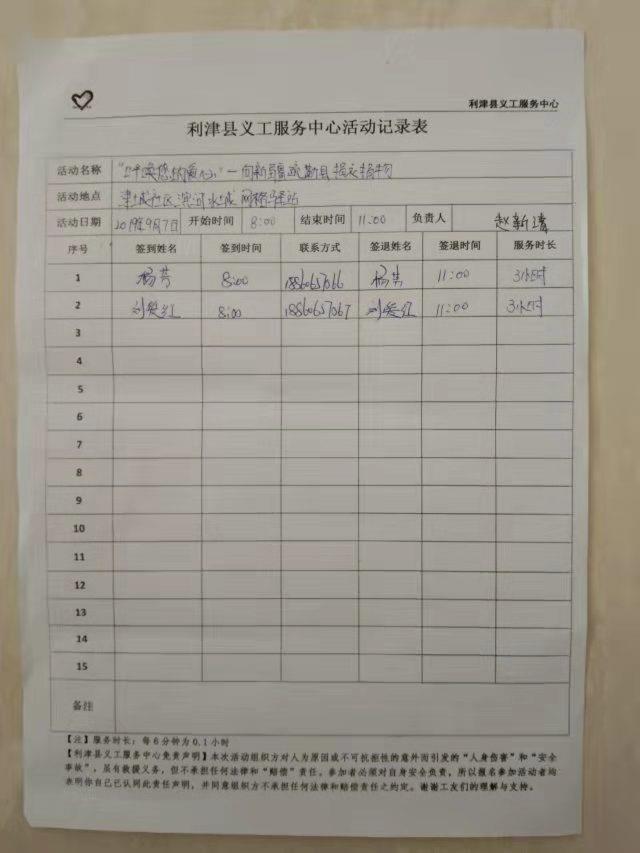 利津县义工服务中心
利津县义工服务中心活动记录表
活动名称 "呼唤您的爱心"—向新疆疏勒县捐衣捐物
活动地点 津城社区滨河水城网格驿站
活动日期 2019年9月7日 开始时间 8:00 结束时间 11:00 负责人 赵新
序号 签到姓名 签到时间 联系方式 签退姓名 签退时间 服务时长
1 杨芳 8:00 11:00 3小时
2 刘爱红 8:00 18860657067 刘爱红 11:00 3小时
3
4
5
6
7
8
9
10
11
12
13
14
15
备注
【注】服务时长：每6分钟为0.1小时
【利津县义工服务中心免责声明】本次活动组织方对人为原因或不可抗拒性的意外而引发的"人身伤害"和"安全
事故"，虽有救援义务，但不承担任何法律和"赔偿"责任。参加者必须对自身安全负责，所以报名参加活动者均
表明你自己已认同此责任声明，并同意组织方不承担任何法律和赔偿责任之约定。谢谢工友们的理解与支持。